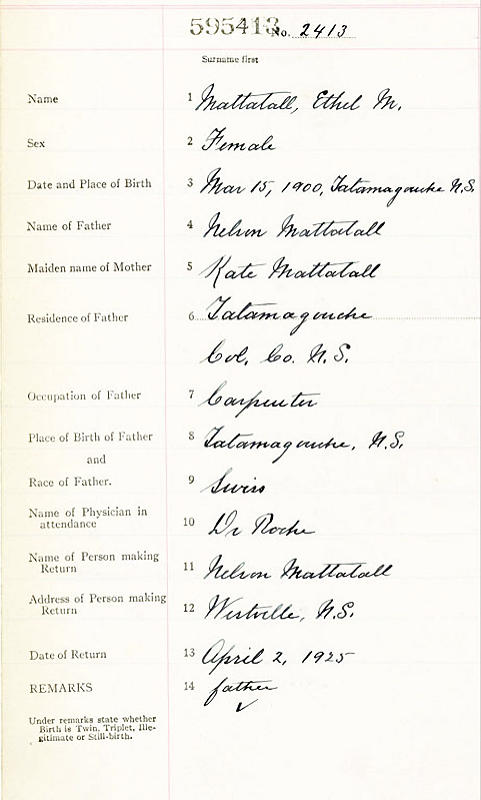 595413 No. 2413
Surname first
Name 1 Mattatall, Ethel M.
Sex 2 Female
Date and Place of Birth 3 Mar 15, 1900, Tatamagouche N.S.
Name of Father 4 Nelson Mattatall
Maiden name of Mother 5 Kate Mattatall
Residence of Father 6 Tatamagouche
Col. Co. N.S.
Occupation of Father 7 Carpenter
Place of Birth of Father 8 Tatamagouche, N.S.
and
Race of Father. 9 Swiss
Name of Physician in
attendance 10 Dr Roche
Name of Person making
Return 11 Nelson Mattatall
Address of Person making
Return 12 Westville, N.S.
Date of Return 13 April 2, 1925
REMARKS 14 father
Under remarks state whether
Birth is Twin, Triplet, Ille-
gitimate or Still-birth.